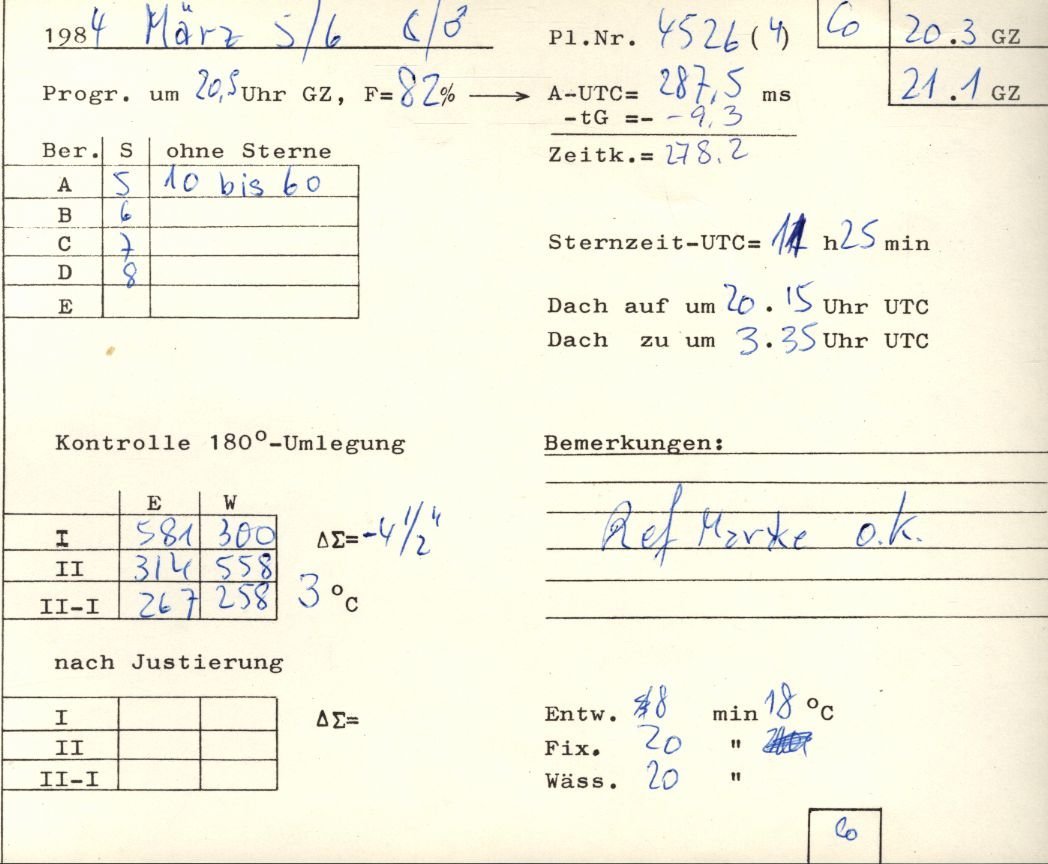 1984 März 5/6 ☾/♂ Pl.Nr. 4526 (4) Co 20.3 GZ
Progr. um 20,5 Uhr GZ, F=82% → A-UTC= 287,5 ms 21.1 GZ
-tG =- -9,3
Ber. S ohne Sterne Zeitk.= 278.2
A 5 10 bis 60
B 6
C 7 Sternzeit-UTC= 11 h 25 min
D 8
E Dach auf um 20.15 Uhr UTC
Dach zu um 3.35 Uhr UTC
Kontrolle 180°-Umlegung Bemerkungen:
E W
I 581 300 ΔΣ= -4 1/2" Ref Marke o.k.
II 314 558
II-I 267 258 3 °C
nach Justierung
I ΔΣ= Entw. 8 min 18 °C
II Fix. 20 "
II-I Wäss. 20 "
Co